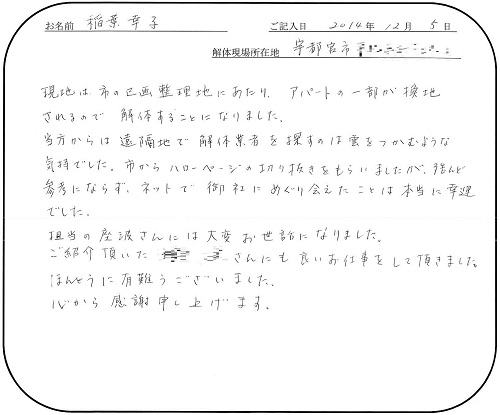 お名前 稲葉 幸子 ご記入日 2014年 12月 5日
解体現場所在地 宇都宮市
現地は市の区画整理地にあたり、アパートの一部が換地
されるので解体することになりました。
当方からは遠隔地で解体業者を探すのは雲をつかむような
気持でした。市からハローページの切り抜きをもらいましたが、殆んど
参考にならず、ネットで御社にめぐり会えたことは本当に幸運
でした。
担当の座波さんには大変お世話になりました。
ご紹介頂いた さんにも良いお仕事をして頂きました。
ほんとうに有難うございました。
心から感謝申し上げます。